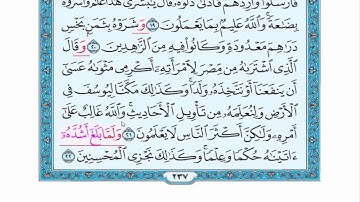 فَأَرْسَلُوا۟ وَارِدَهُمْ فَأَدْلَىٰ دَلْوَهُۥ قَالَ يَٰبُشْرَىٰ هَٰذَا غُلَٰمٌ وَأَسَرُّوهُ
بِضَٰعَةً وَٱللَّهُ عَلِيمٌۢ بِمَا يَعْمَلُونَ ١٩ وَشَرَوْهُ بِثَمَنٍۭ بَخْسٍ
دَرَٰهِمَ مَعْدُودَةٍ وَكَانُوا۟ فِيهِ مِنَ ٱلزَّٰهِدِينَ ٢٠ وَقَالَ
ٱلَّذِى ٱشْتَرَىٰهُ مِن مِّصْرَ لِٱمْرَأَتِهِۦٓ أَكْرِمِى مَثْوَىٰهُ عَسَىٰٓ
أَن يَنفَعَنَآ أَوْ نَتَّخِذَهُۥ وَلَدًا وَكَذَٰلِكَ مَكَّنَّا لِيُوسُفَ فِى
ٱلْأَرْضِ وَلِنُعَلِّمَهُۥ مِن تَأْوِيلِ ٱلْأَحَادِيثِ وَٱللَّهُ غَالِبٌ عَلَىٰٓ
أَمْرِهِۦ وَلَٰكِنَّ أَكْثَرَ ٱلنَّاسِ لَا يَعْلَمُونَ ٢١ وَلَمَّا بَلَغَ أَشُدَّهُۥٓ
ءَاتَيْنَٰهُ حُكْمًا وَعِلْمًا وَكَذَٰلِكَ نَجْزِى ٱلْمُحْسِنِينَ ٢٢
٢٣٧